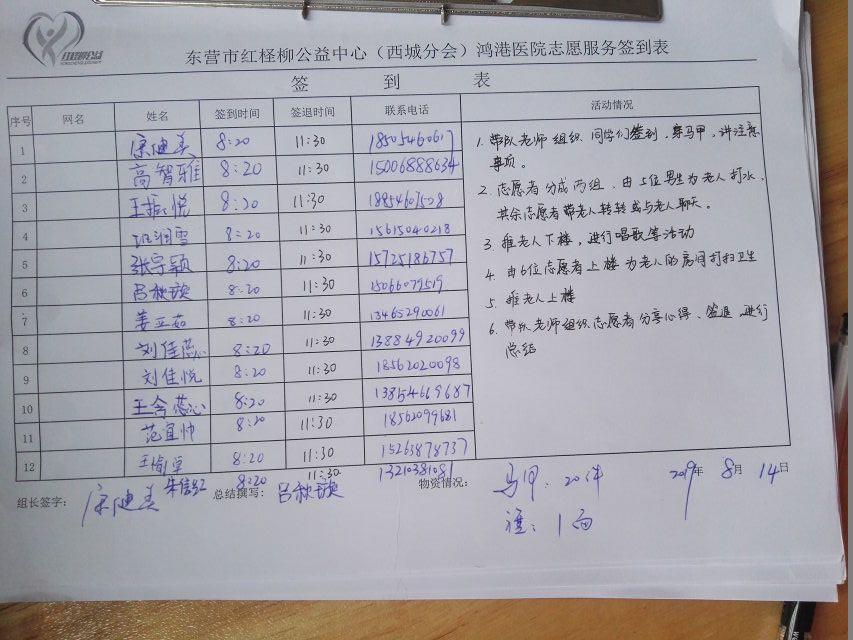 红柽柳公益
东营市红柽柳公益中心（西城分会）鸿港医院志愿服务签到表
签 到 表
序号 网名 姓名 签到时间 签退时间 联系电话 活动情况
1 康迪美 8:20 11:30 18505460617
2 高智雅 8:20 11:30 15006888634
3 王振悦 8:20 11:30 18854607508
4 润雪 8:20 11:30 15615040218
5 张宇颖 8:20 11:30 15725186757
6 吕秋璇 8:20 11:30 15066079519
7 姜立茹 8:20 11:30 13465290061
8 刘佳蕊 8:20 11:30 13884920099
9 刘佳悦 8:20 11:30 18562020098
10 王令蕊 8:20 11:30 13854669687
11 范宜帅 8:20 11:30 18562099681
12 王 8:20 11:30 15263878737
朱 8:20 11:30 13210381081
1. 带队老师组织同学们签到，穿马甲，讲注意
事项。
2. 志愿者分成两组，由5位男生为老人打水，
其余志愿者带老人转转或与老人聊天。
3. 推老人下楼，进行唱歌等活动
4. 由6位志愿者上楼为老人的房间打扫卫生
5. 推老人上楼
6. 带队老师组织志愿者分享心得、签退，进行
总结
组长签字： 康迪美 总结撰写： 吕秋璇 物资情况： 马甲：20件 2019年 8月 14日
旗：1面